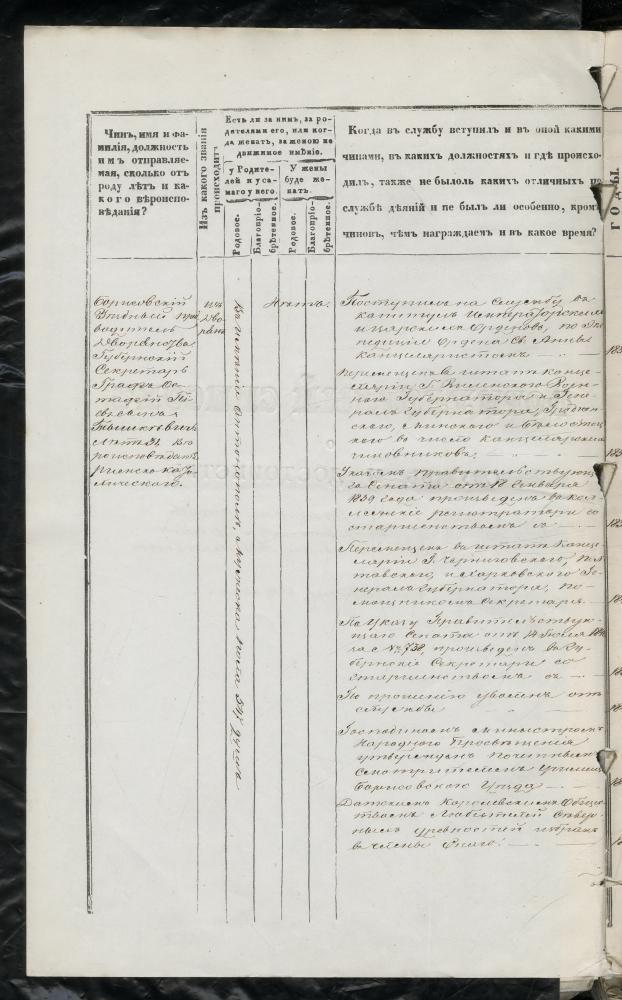 Чинъ, имя и фа-
милія, должность
имъ отправляе-
мая, сколько отъ
роду лѣтъ и ка-
кого вѣроиспо-
вѣданія?
Изъ какого званія
происходитъ
Есть ли за нимъ, за ро-
дителями его, или ког-
да женатъ, за женою не
движимое имѣніе.
у Родите-
лей и у са-
маго у него.
У жены
буде же-
натъ.
Родовое.
Благопріо-
брѣтенное.
Родовое.
Благопріо-
брѣтенное.
Когда въ службу вступилъ и въ оной какими
чинами, въ какихъ должностяхъ и гдѣ происхо-
дилъ, также не былоль какихъ отличныхъ по
службѣ дѣяній и не былъ ли особенно, кромѣ
чиновъ, чѣмъ награждаемъ и въ какое время?
ГОДЫ.
Борисовскій
Уѣздный Пред
водитель
Дворянства
Губернскій
Секретарь
Графъ Ев-
стафій Пі-
Тышкевичъ
лѣтъ
роисповѣданія
Римско-Ка-
лическаго.
изъ
Дво-
рянъ
Въ имѣніи душъ
Нѣтъ.
Поступилъ на службу въ
Капитулъ Императорскихъ
и Царскихъ Орденовъ, по Экс
педиціи Ордена Св. Анны
Канцеляристомъ
Перемещенъ въ штатъ Канце-
ляріи Г. Виленскаго Воен-
наго Губернатора и Гене-
ралъ Губернатора, Гроднен-
скаго, Минскаго и Бѣлостоц
каго въ число Канцелярскихъ
чиновниковъ.
Указомъ Правительствующ
го Сената отъ 18 Января
1839 года произведенъ въ Кол-
лежскіе регистраторы со
старшинствомъ съ
Перемещенъ въ штатъ Канце-
ляріи Г. Черниговскаго, Пол
тавскаго, и Харьковскаго Ге-
нералъ Губернатора, По-
мощникомъ Секретаря
По Указу Правительствую-
щаго Сената отъ 14 Іюля
за № 738, произведенъ въ Гу-
бернскіе Секретари со
старшинствомъ съ
По прошенію уволенъ отъ
службы
Господиномъ Министромъ
Народнаго Просвѣщенія
утвержденъ Почетнымъ
Смотрителемъ Училищъ
Борисовскаго Уѣзда
Датскимъ Королевскимъ Общес
твомъ Любителей Сѣвер-
ныхъ древностей избранъ
въ члены онаго.